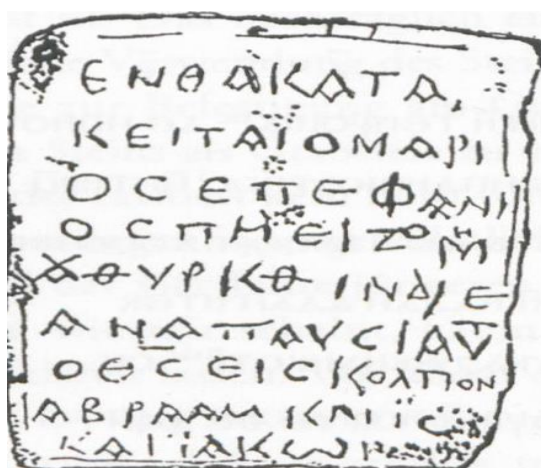 ΕΝΘΑΚΑΤΑ
ΚΕΙΤΑΙΟΜΑΡΙ
ΟϹΕΠΕΦΑΝΙ
ΟϹΠΗΕΙΖΟΜΗ
ΧΘΥΡΚΘΙΝΔ/Ε
ΑΝΑΠΑΥϹΙΑΥΤ
ΟΘϹΕΙϹΚΟΛΠΟΝ
ΑΒΡΑΑΜ ΚΑΙ
ΚΑΙΙΑΚΩΒ